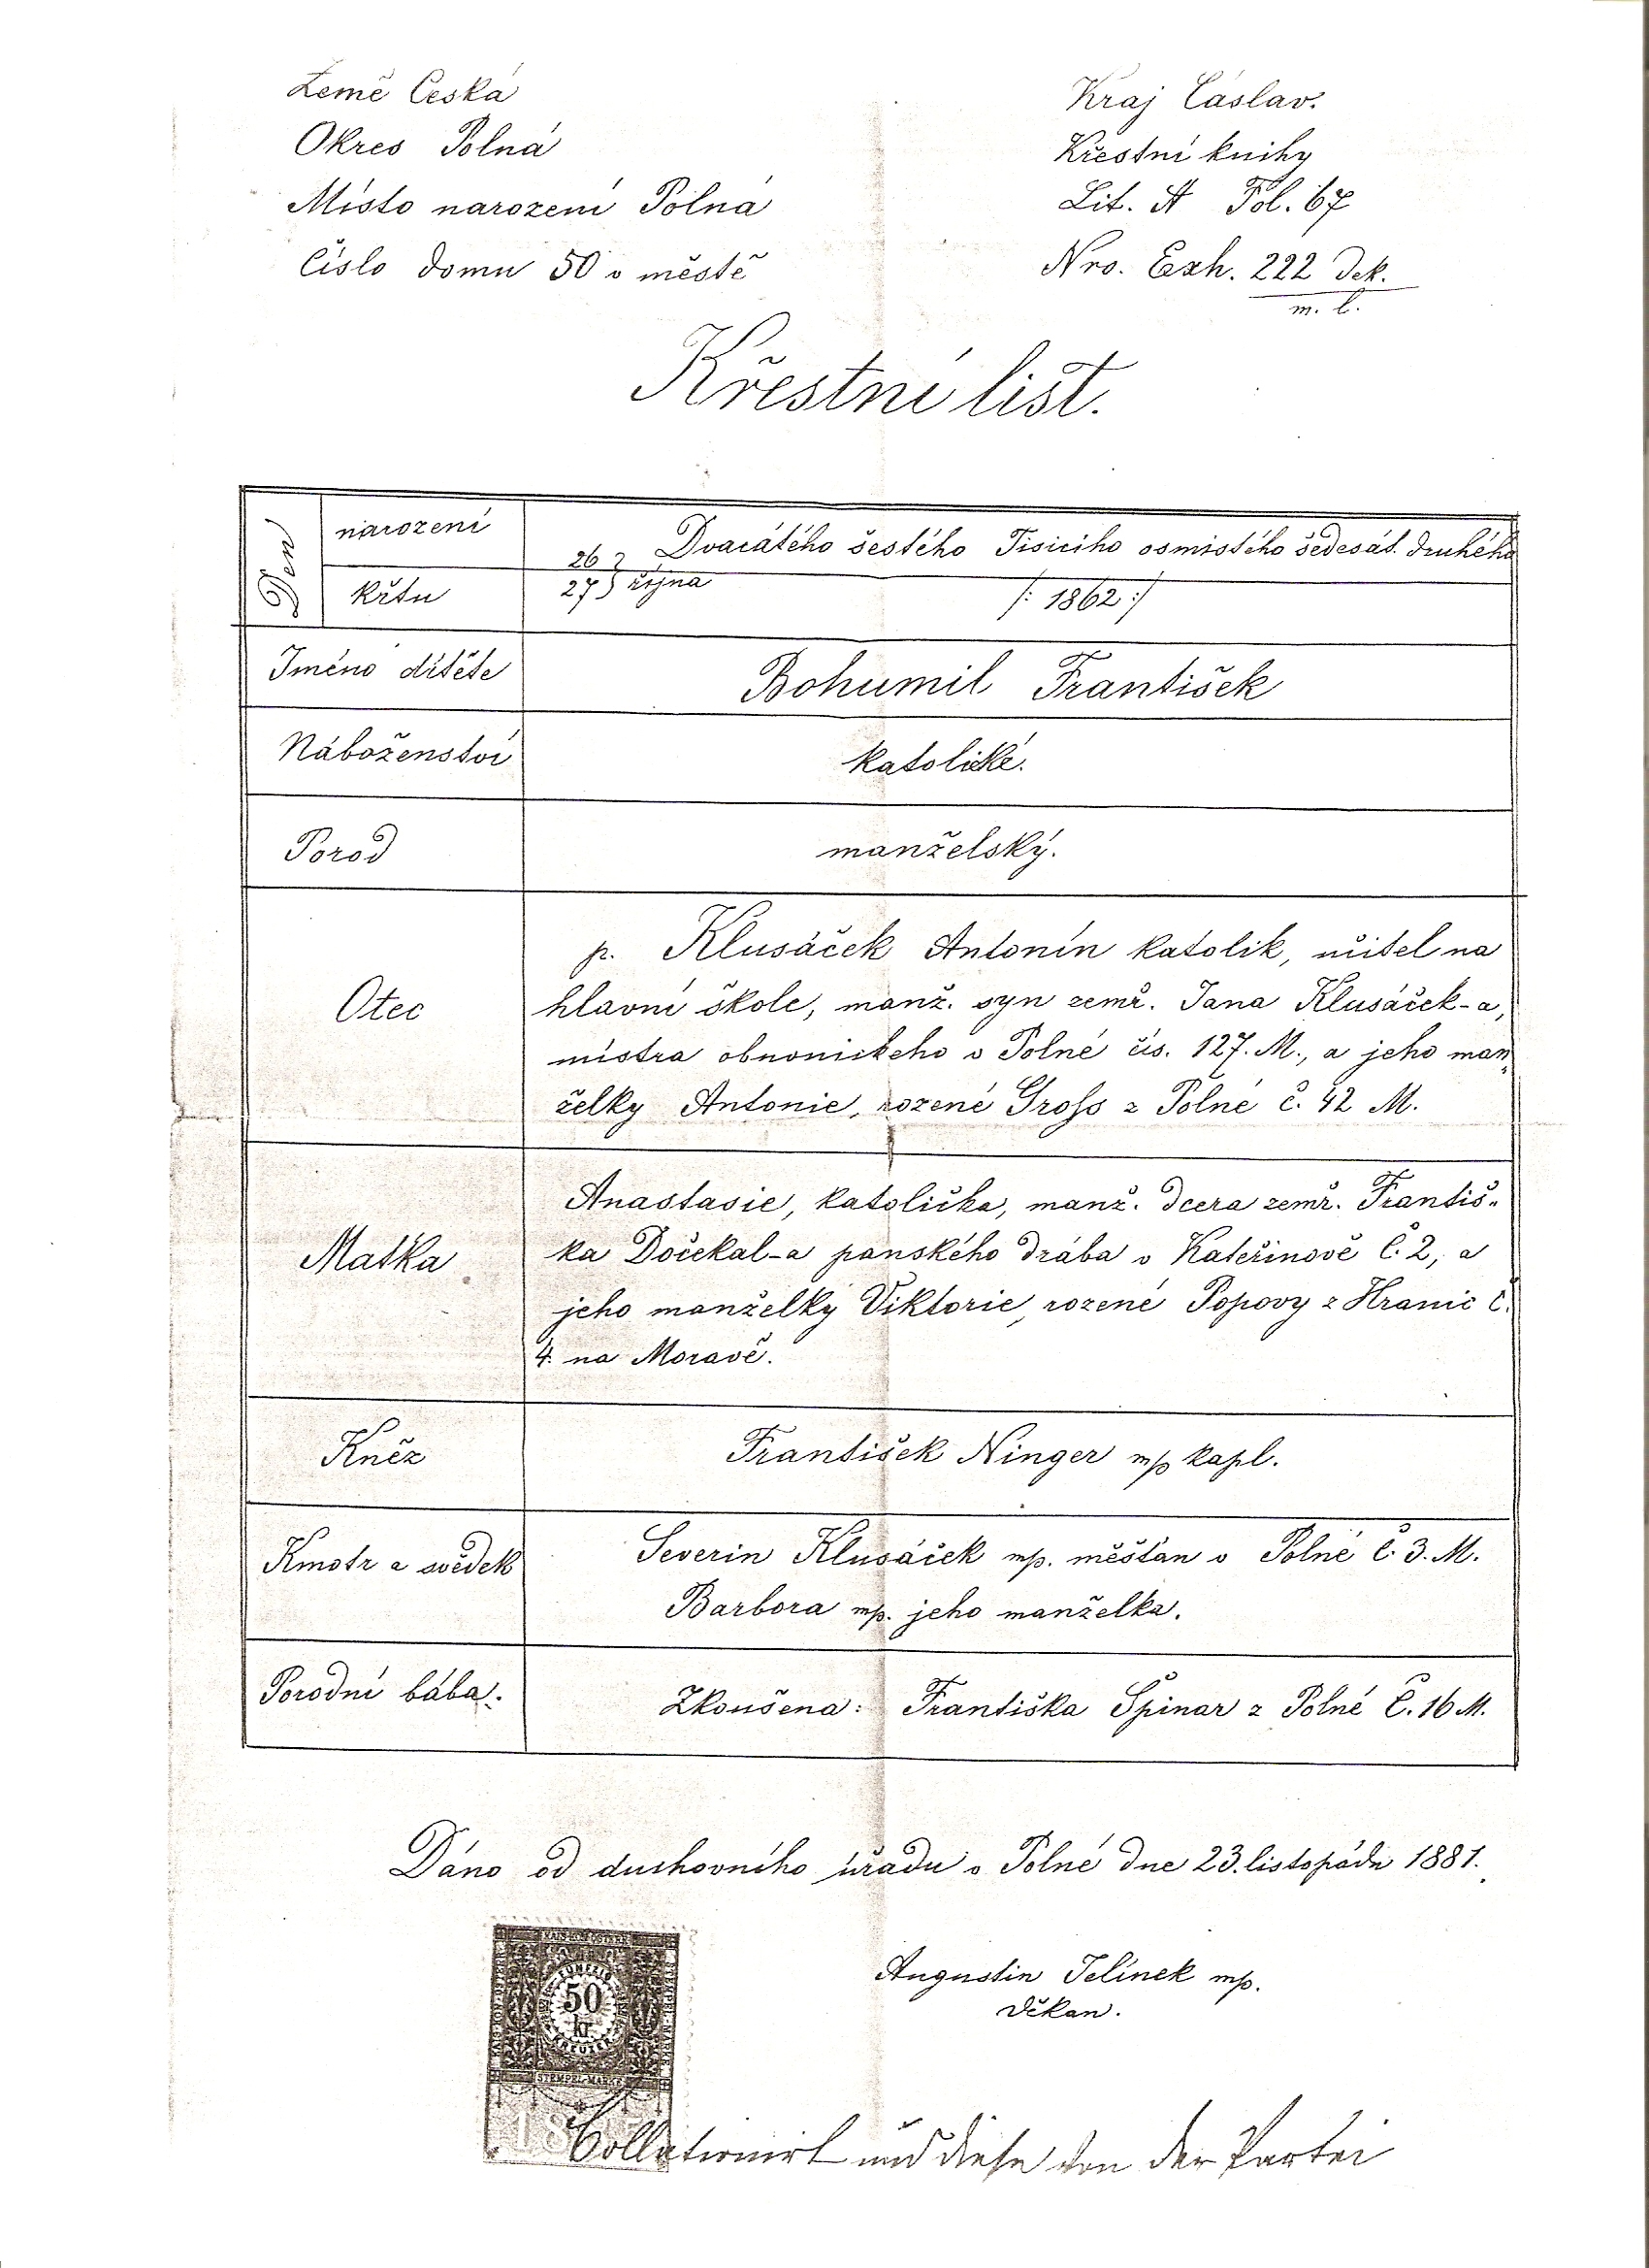 Země Česká
Kraj Čáslav.
Okres Polná
Křestní knihy
Místo narození Polná
Lit. A Fol. 67
Číslo domu 50 v městě
Nro. Exh. 222 dek.
m. l.
Křestní list.
Den
narození
26 } Dvacátého šestého Tisícího osmistého šedesát. druhého
křtu
27 } října /: 1862 :/
Jméno dítěte
Bohumil František
Náboženství
katolické.
Porod
manželský.
Otec
p. Klusáček Antonín katolík, učitel na
hlavní škole, manž. syn zemř. Jana Klusáček-a,
mistra obuvnického v Polné čís. 127. M., a jeho man„
želky Antonie, rozené Gross z Polné č. 42 M.
Matka
Anastasie, katolička, manž. dcera zemř. Františ„
ka Dočekal-a panského drába v Kateřinově č. 2, a
jeho manželky Viktorie, rozené Popovy z Hranic č.
4. na Moravě.
Kněz
František Ninger mp kapl.
Kmotr a svědek
Severin Klusáček mp. měšťan v Polné č. 3. M.
Barbora mp. jeho manželka.
Porodní bába.
Zkoušena: Františka Špinar z Polné Č. 16 M.
Dáno od duchovního úřadu v Polné dne 23. listopádu 1881.
FÜNFZIG
50
kr
KREUZER
STEMPEL-MARKE
Augustin Jelínek mp.
děkan.
Collationirt und diese von der Partei